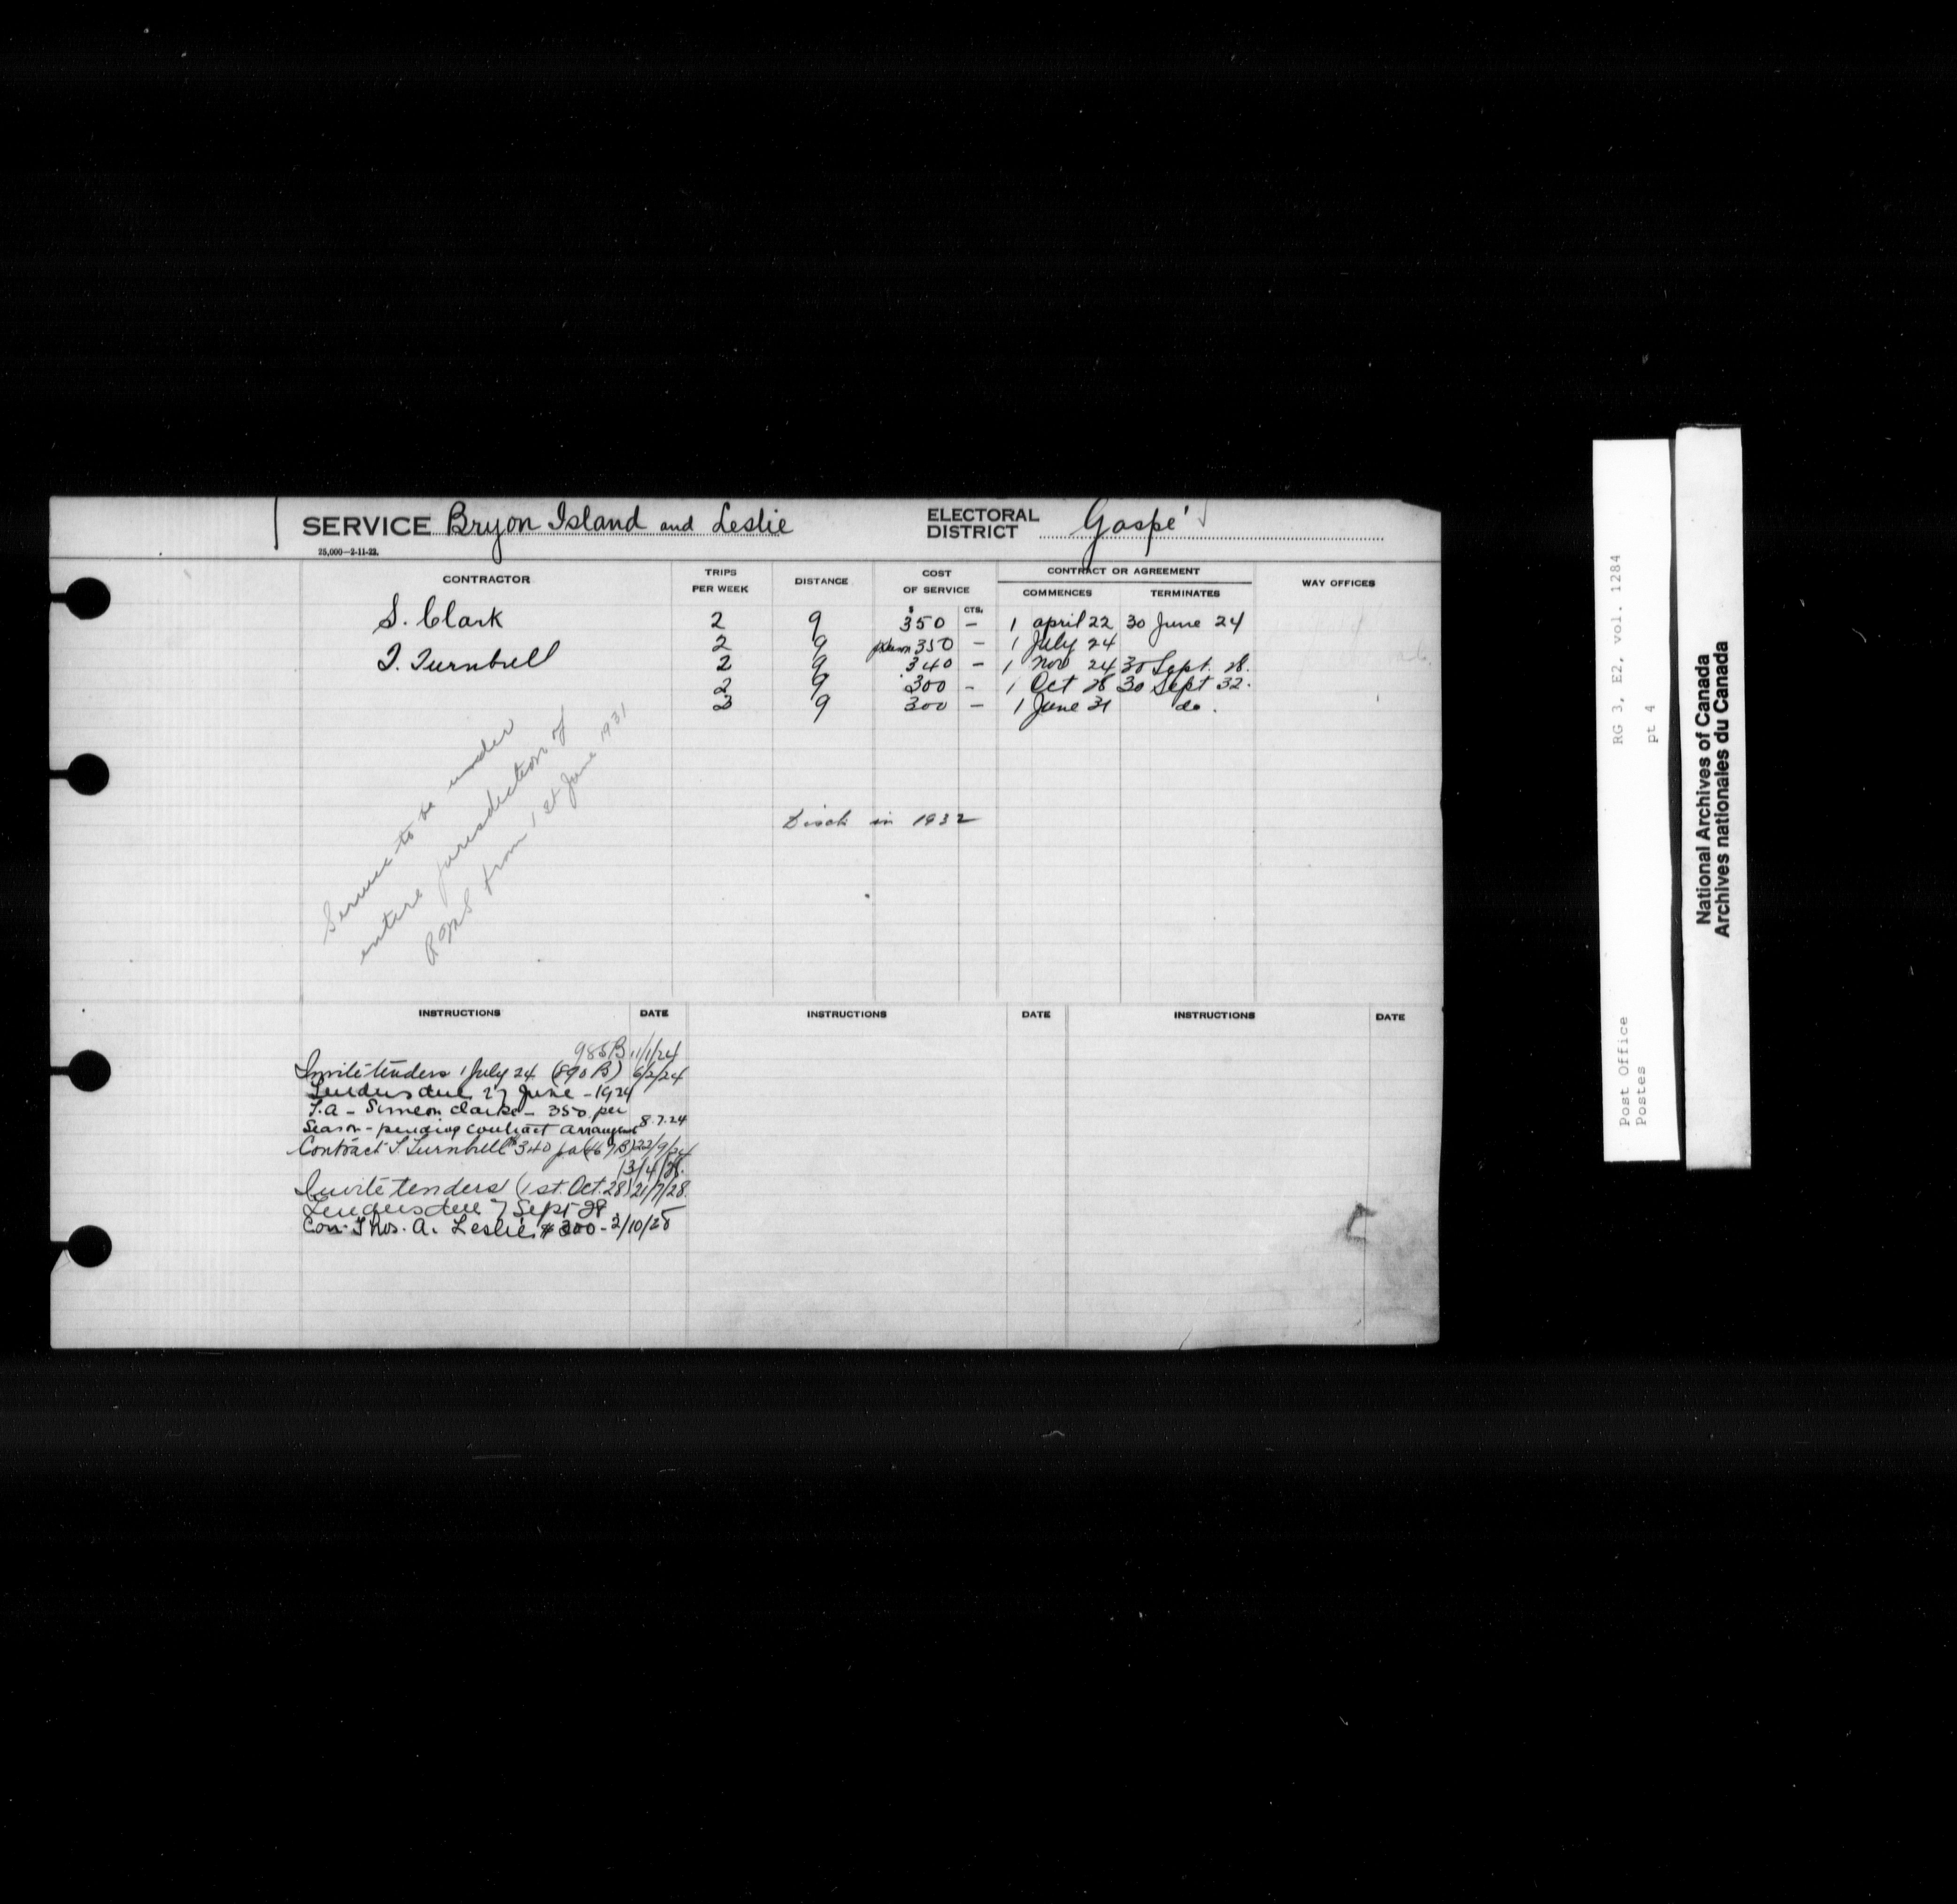 SERVICE Bryon Island and Leslie ELECTORAL DISTRICT Gaspé
25,000—2-11-22.
CONTRACTOR TRIPS PER WEEK DISTANCE COST OF SERVICE CONTRACT OR AGREEMENT WAY OFFICES
COMMENCES TERMINATES
$ CTS.
S. Clark 2 9 350 — 1 April 22 30 June 24
2 9 350 — 1 July 24
T. Turnbull 2 9 340 — 1 Nov 24 30 Sept. 28.
2 9 300 - 1 Oct 28 30 Sept 32.
3 9 300 — 1 June 31 do.
Service to be under
entire jurisdiction of
from 1st June 1931
Disch in 1932
INSTRUCTIONS DATE INSTRUCTIONS DATE INSTRUCTIONS DATE
985B 11/1/24
Invite tenders 1 July 24 (890 B) 6/2/24
Tenders due 27 June - 1924
T.A - Simeon Clarke - 350 per
Season - pending contract arrangmt 8.7.24
Contract T. Turnbull $340 pa 22/9/24
13/4/28.
Invite tenders (1st. Oct. 28) 21/7/28.
Tenders due 7 Sept 28
Con. Thos. A. Leslie $300 - 2/10/28
RG 3, E2, vol. 1284
pt 4
Post Office
Postes
National Archives of Canada
Archives nationales du Canada